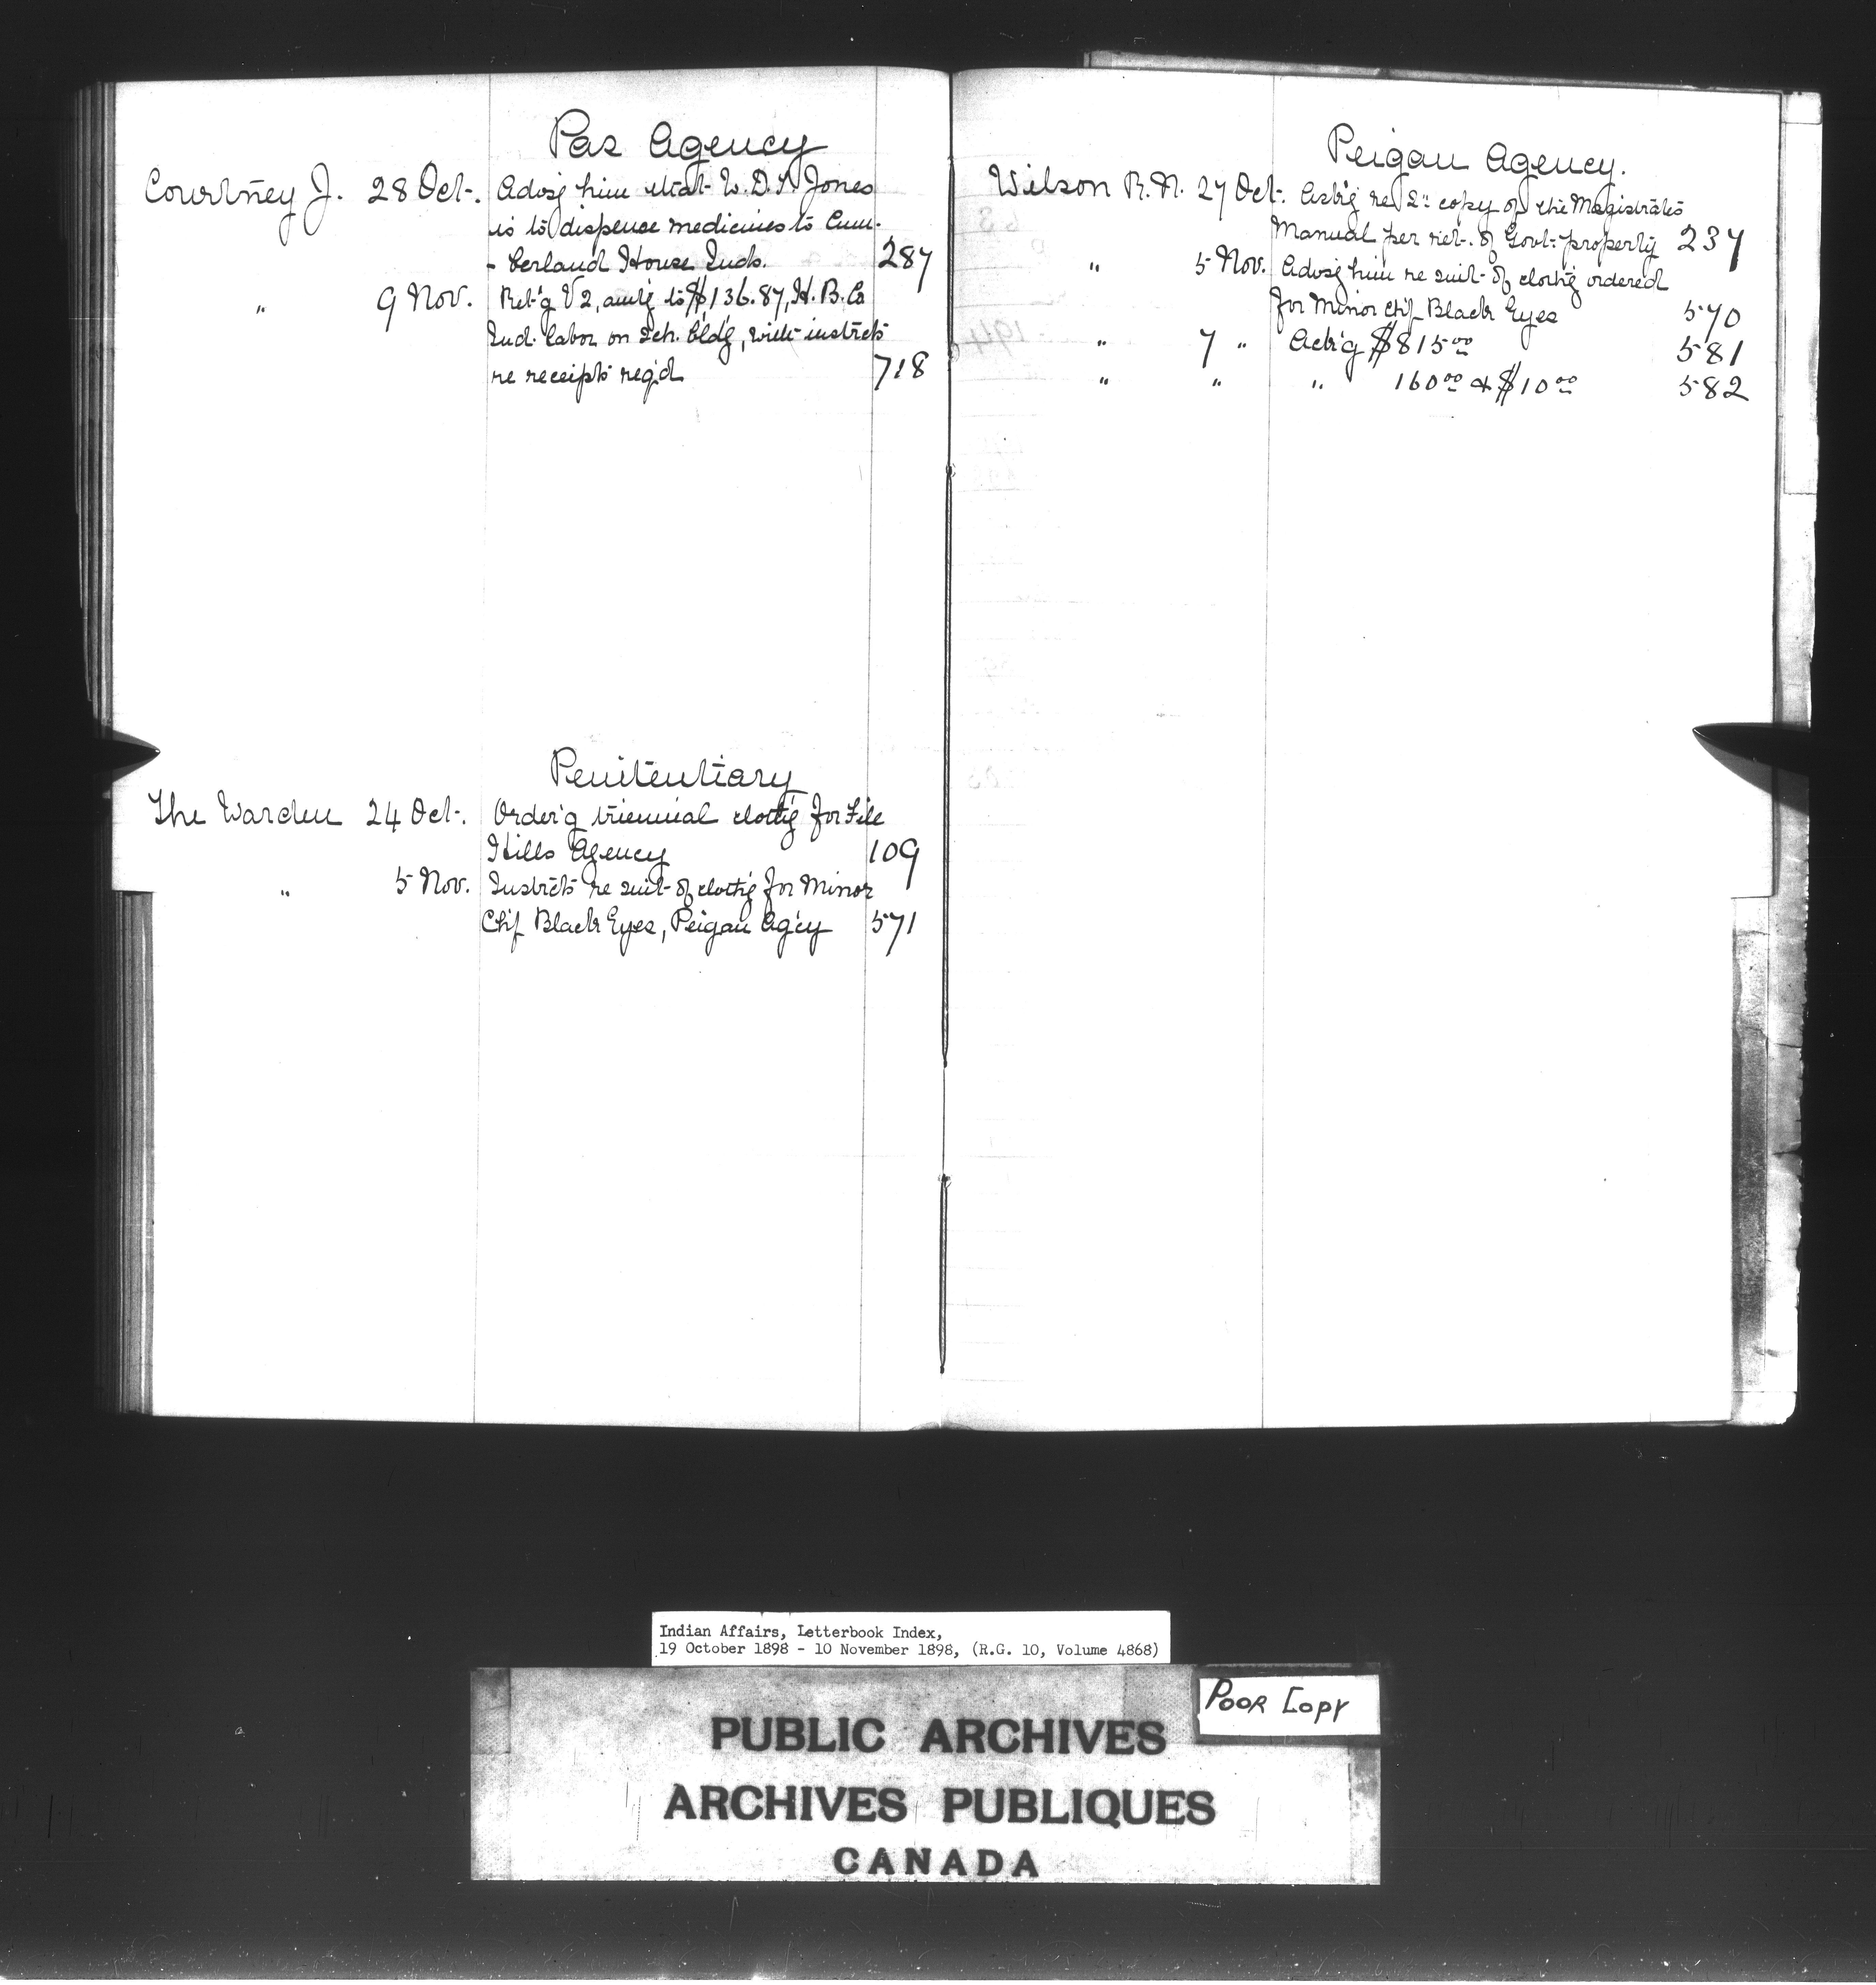 Pas Agency
Courtney J. 28 Oct. Advs'g him that W. D. A. Jones
is to dispense medicines to Cum-
- berland House Inds. 287
" 9 Nov. Ret'g V2, amt'g to $136.87, H. B. Co
Ind. labor on Sch. bld'g, with instrcts
re receipts req'd 718
Penitentiary
The Warden 24 Oct. Order'g triennial cloth'g for File
Hills Agency 109
" 5 Nov. Instrcts re suit of cloth'g for Minor
Ch'f Black Eyes, Peigan Ag'cy 571
Peigan Agency.
Wilson R. N. 27 Oct. Ask'g re 2" copy of the Magistrates
Manual per ret. of Govt. property 237
" 5 Nov. Advs'g him re suit of cloth'g ordered
for Minor Ch'f Black Eyes 570
" 7 " Ack'g $815 00 581
" " " 160 00 & $10 00 582
Indian Affairs, Letterbook Index,
19 October 1898 - 10 November 1898, (R.G. 10, Volume 4868)
Poor Copy
PUBLIC ARCHIVES
ARCHIVES PUBLIQUES
CANADA